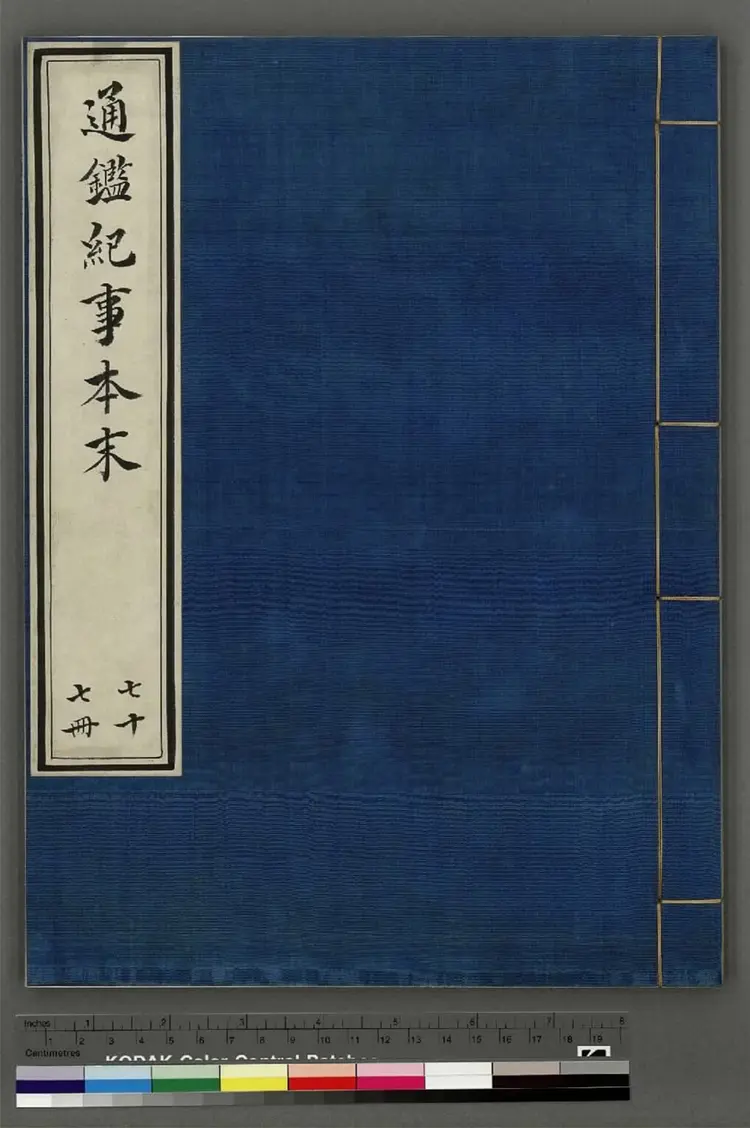 通鑑紀事本末
七十
七冊
Inches 1 2 3 4 5 6 7 8
1 2 3 4 5 6 7 8 9 10 11 12 13 14 15 16 17 18 19
Centimetres
KODAK Color Control Patches